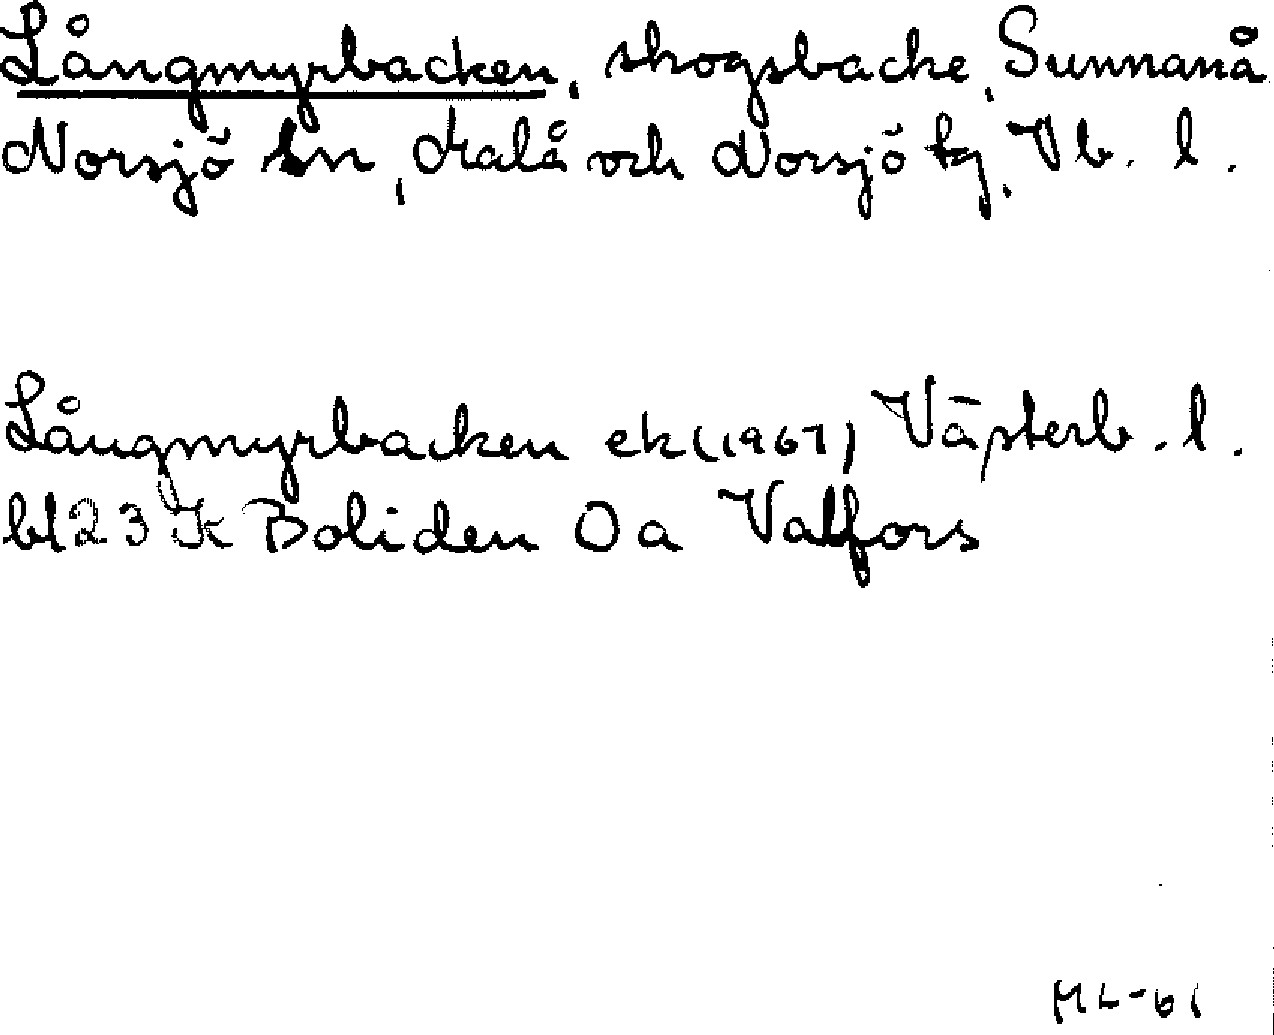 Långmyrbacken, skogsbacke, Sunnanå
Norsjö sn, Malå och Norsjö tg, Vb. l.
Långmyrbacken ek (1967) Västerb. l.
bl 23 K Boliden 0a Valfors
ML-61